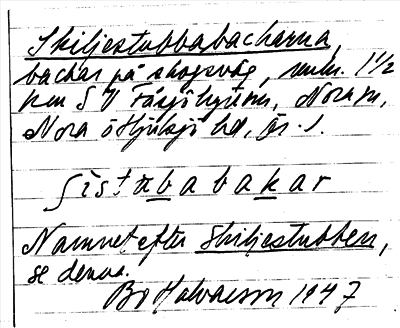 Skiljestubbabackarna,
backar på skogsväg, omkr. 1 1/2
km S V Fåsjöhyttan, Nora sn,
Nora o Hjulsjö hd, Ör. l.
ʃistɐbabakar
Namnet efter Skiljestubben,
se denna.
Bo Halvarson 1947